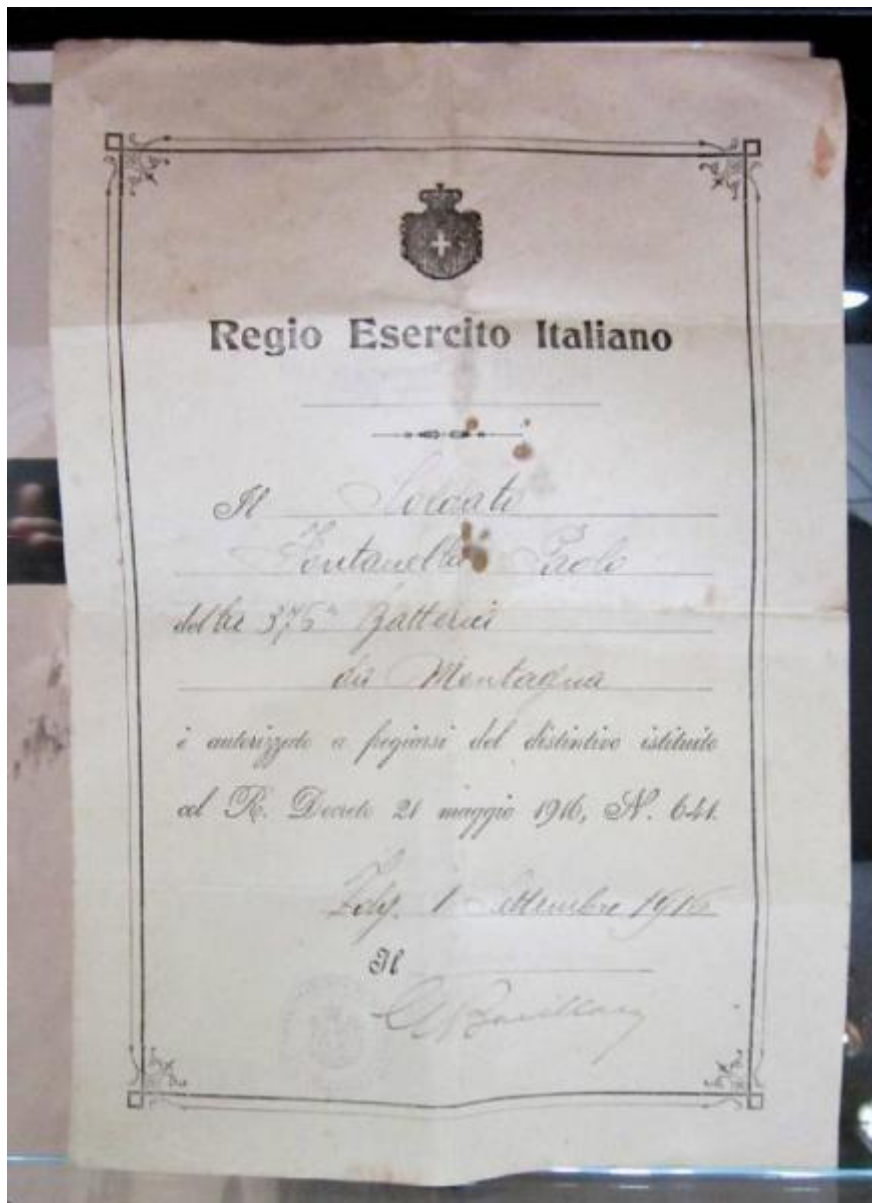 Regio Esercito Italiano
Il Soldato
Fontanella Paolo
della 375ª Batteria
da Montagna
è autorizzato a fregiarsi del distintivo istituito
col R. Decreto 21 maggio 1916, N. 641.
1 Settembre 1916
Il